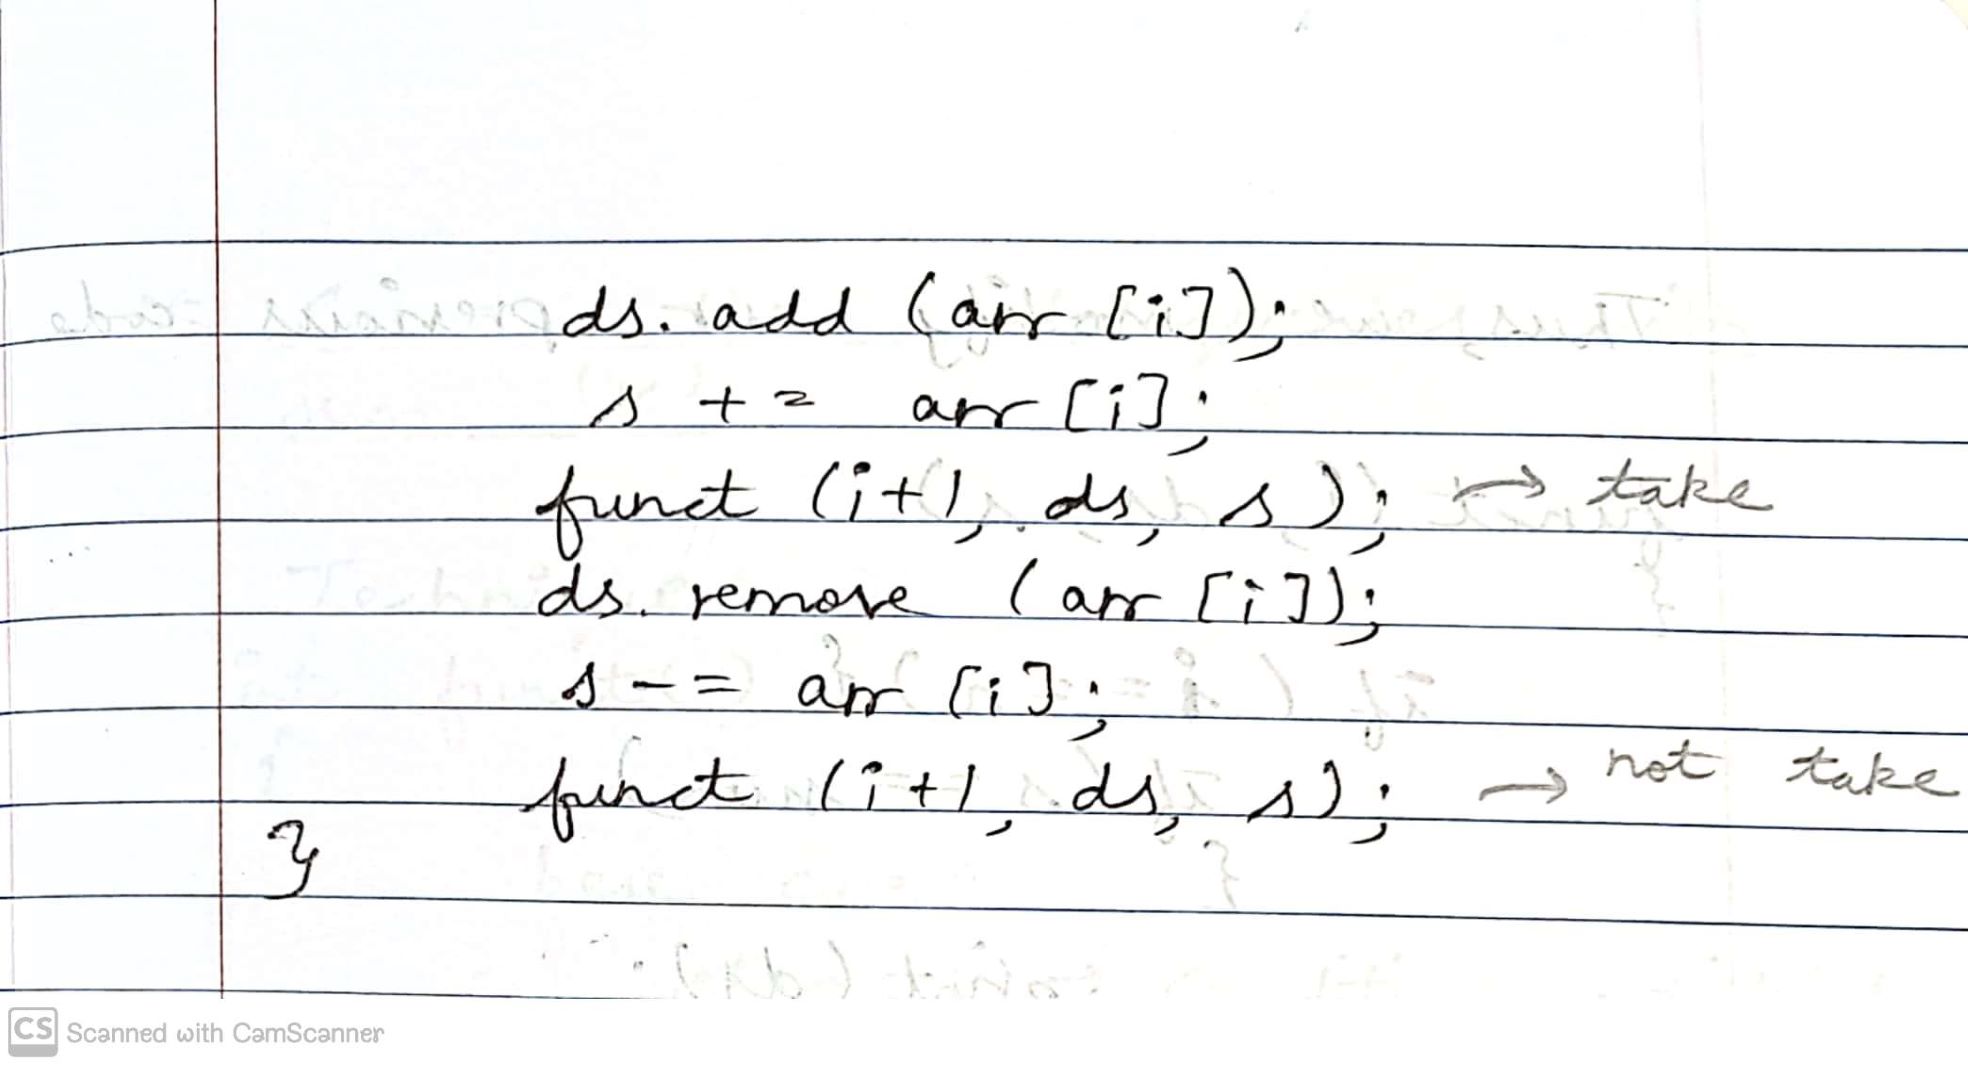 ds. add (arr [i]);
s += arr [i];
funct (i+1, ds, s); → take
ds. remove (arr [i]);
s -= arr [i];
funct (i+1, ds, s); → not take
}
CS Scanned with CamScanner